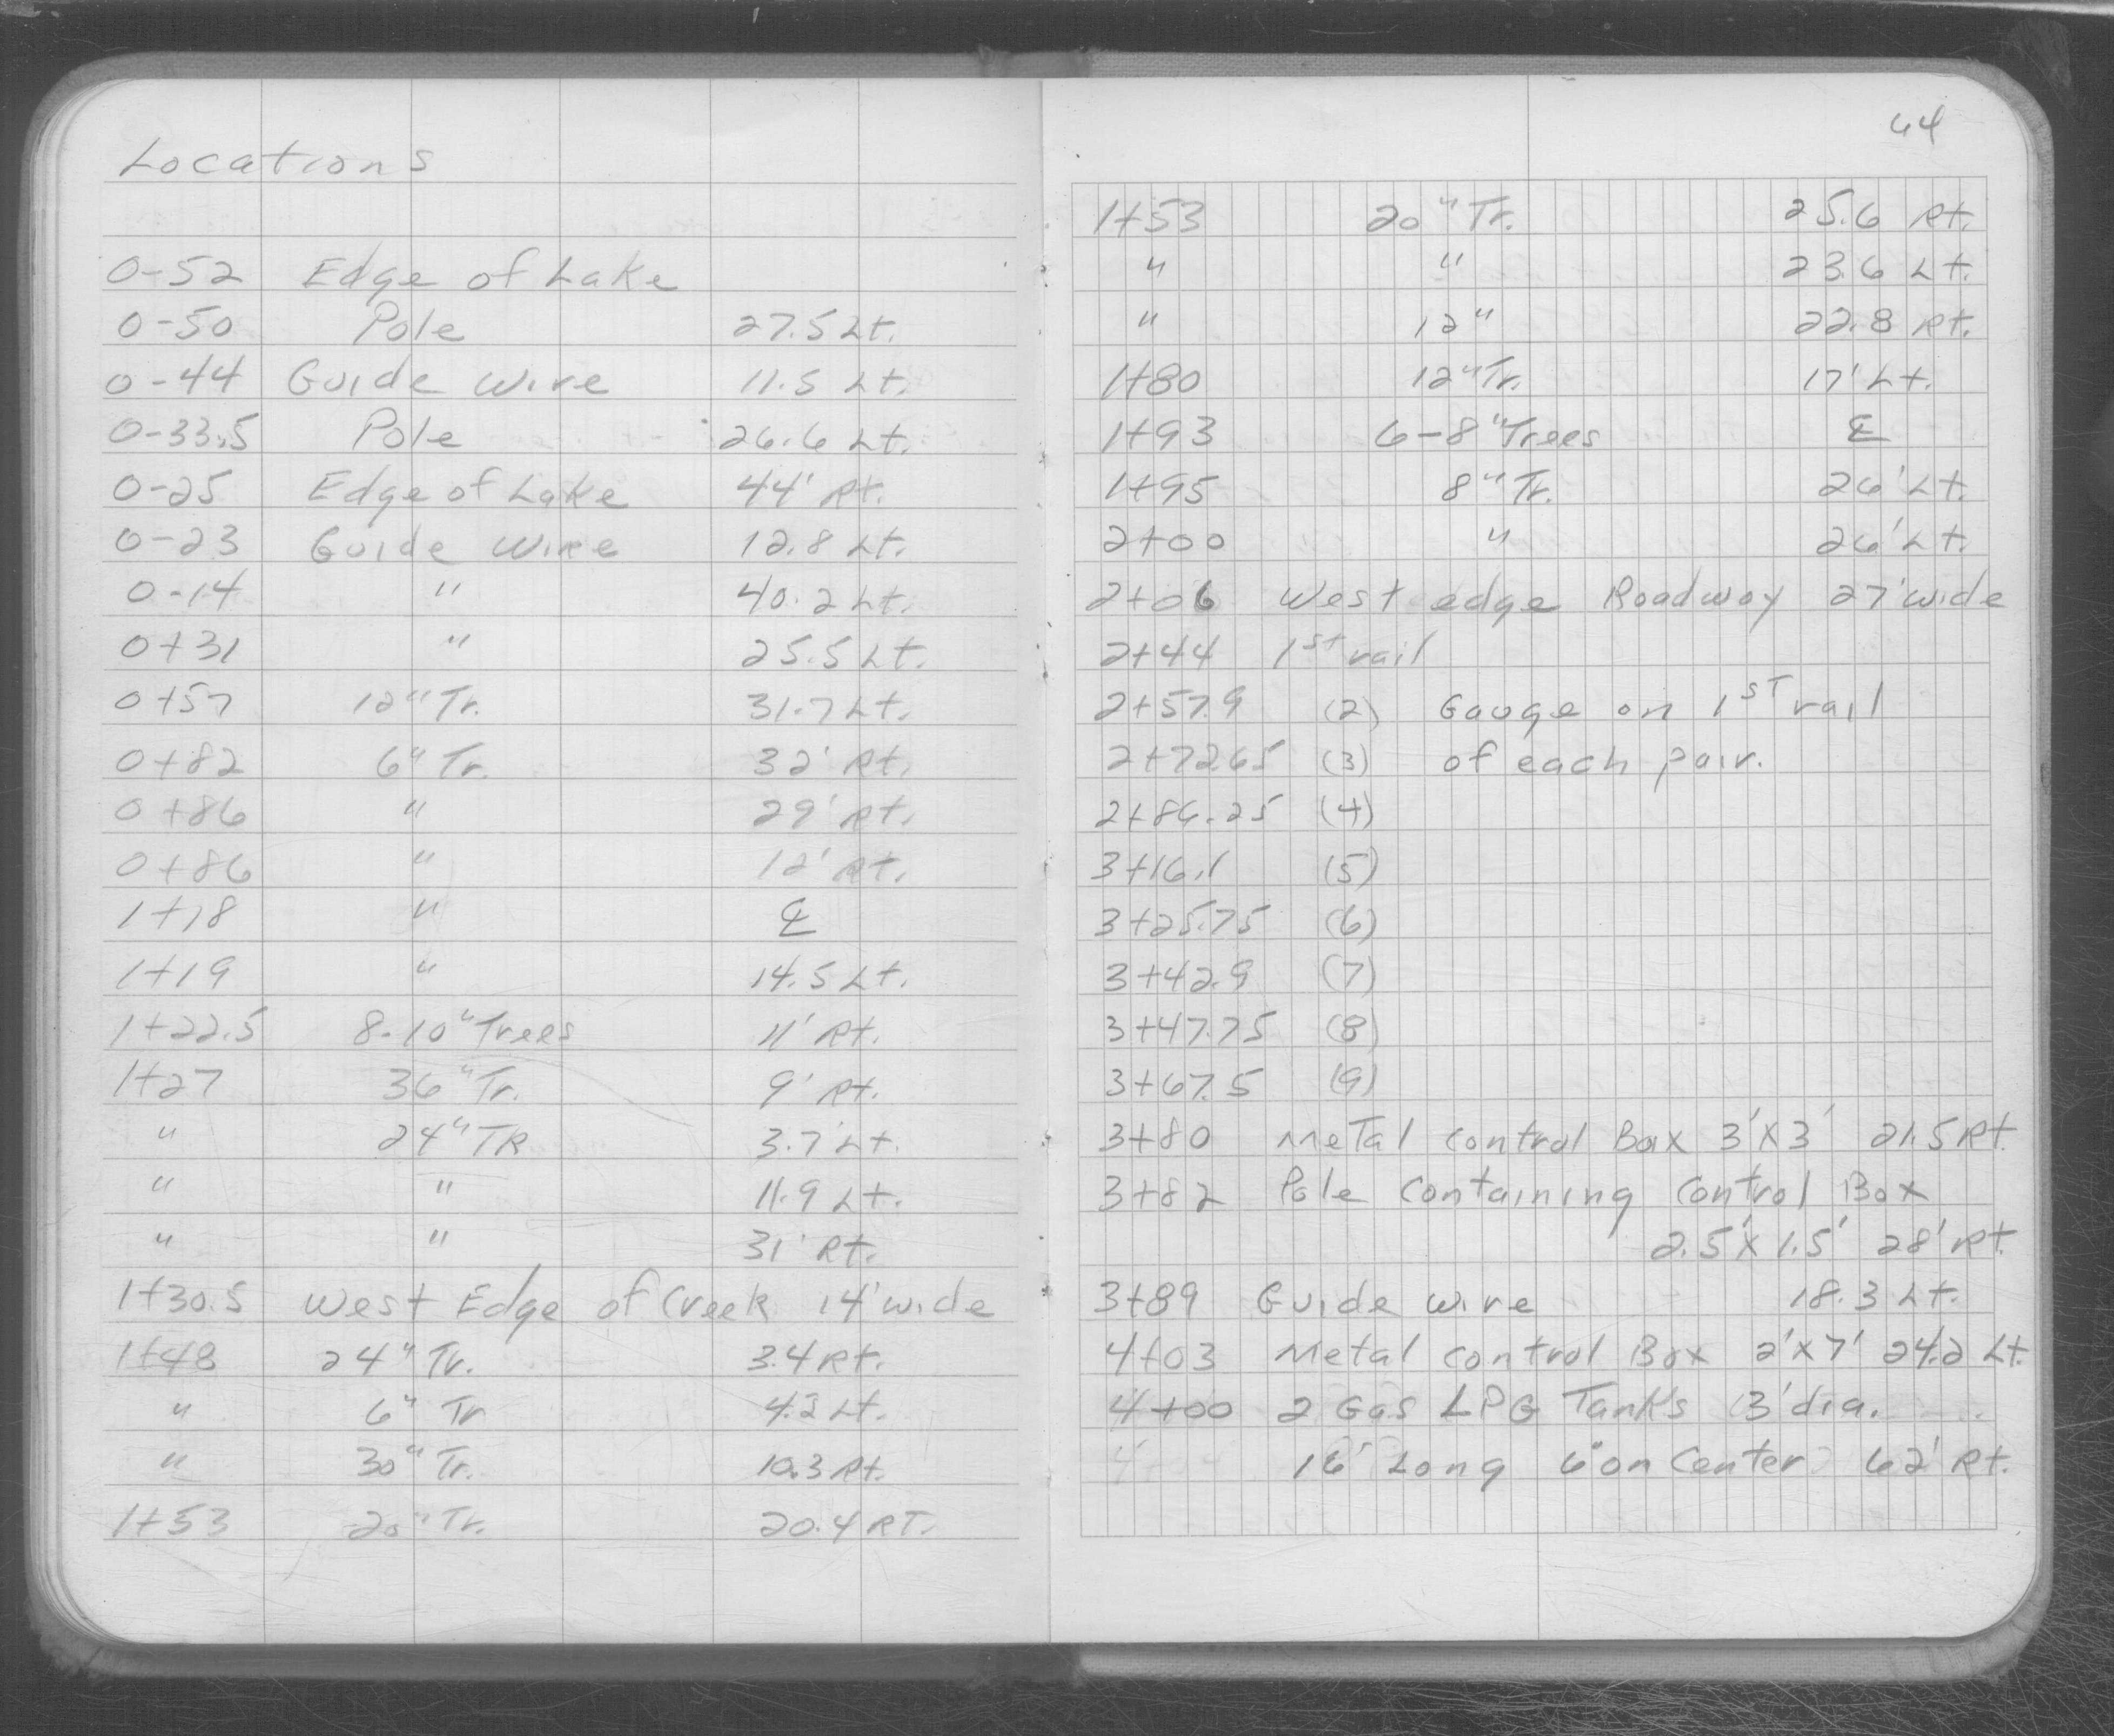 Locations
0-52 Edge of Lake
0-50 Pole 27.5 Lt.
0-44 Guide Wire 11.5 Lt.
0-33.5 Pole 26.6 Lt.
0-25 Edge of Lake 44' Rt.
0-23 Guide Wire 12.8 Lt.
0-14 " 40.2 Lt.
0+31 " 25.5 Lt.
0+57 12" Tr. 31.7 Lt.
0+82 6" Tr. 32' Rt.
0+86 " 29' Rt.
0+86 " 12' Rt.
1+18 " ℄
1+19 " 14.5 Lt.
1+22.5 8-10" Trees 11' Rt.
1+27 36" Tr. 9' Rt.
" 24" TR 3.7' Lt.
" " 11.9 Lt.
" " 31' Rt.
1+30.5 West Edge of Creek 14' wide
1+48 24" Tr. 3.4 Rt.
" 6" Tr 4.2 Lt.
" 30" Tr. 10.3 Rt.
1+53 20" Tr. 20.4 RT.
44
1+53 20" Tr. 25.6 Rt.
" " 23.6 Lt.
" 12" 22.8 Rt.
1+80 12" Tr. 17' Lt.
1+93 6-8" Trees ℄
1+95 8" Tr. 26' Lt.
2+00 " 26' Lt.
2+06 West edge Roadway 27' wide
2+44 1st rail
2+57.9 (2) Gauge on 1ST rail
2+72.65 (3) of each pair.
2+86.25 (4)
3+16.1 (5)
3+25.75 (6)
3+42.9 (7)
3+47.75 (8)
3+67.5 (9)
3+80 Metal Control Box 3'X3' 21.5 Rt.
3+82 Pole Containing Control Box
2.5'X1.5' 28' Rt.
3+89 Guide wire 18.3 Lt.
4+03 Metal Control Box 2'x7' 24.2 Lt.
4+00 2 Gas LPG Tanks 3' dia.
16' Long 6' on Center 62' Rt.